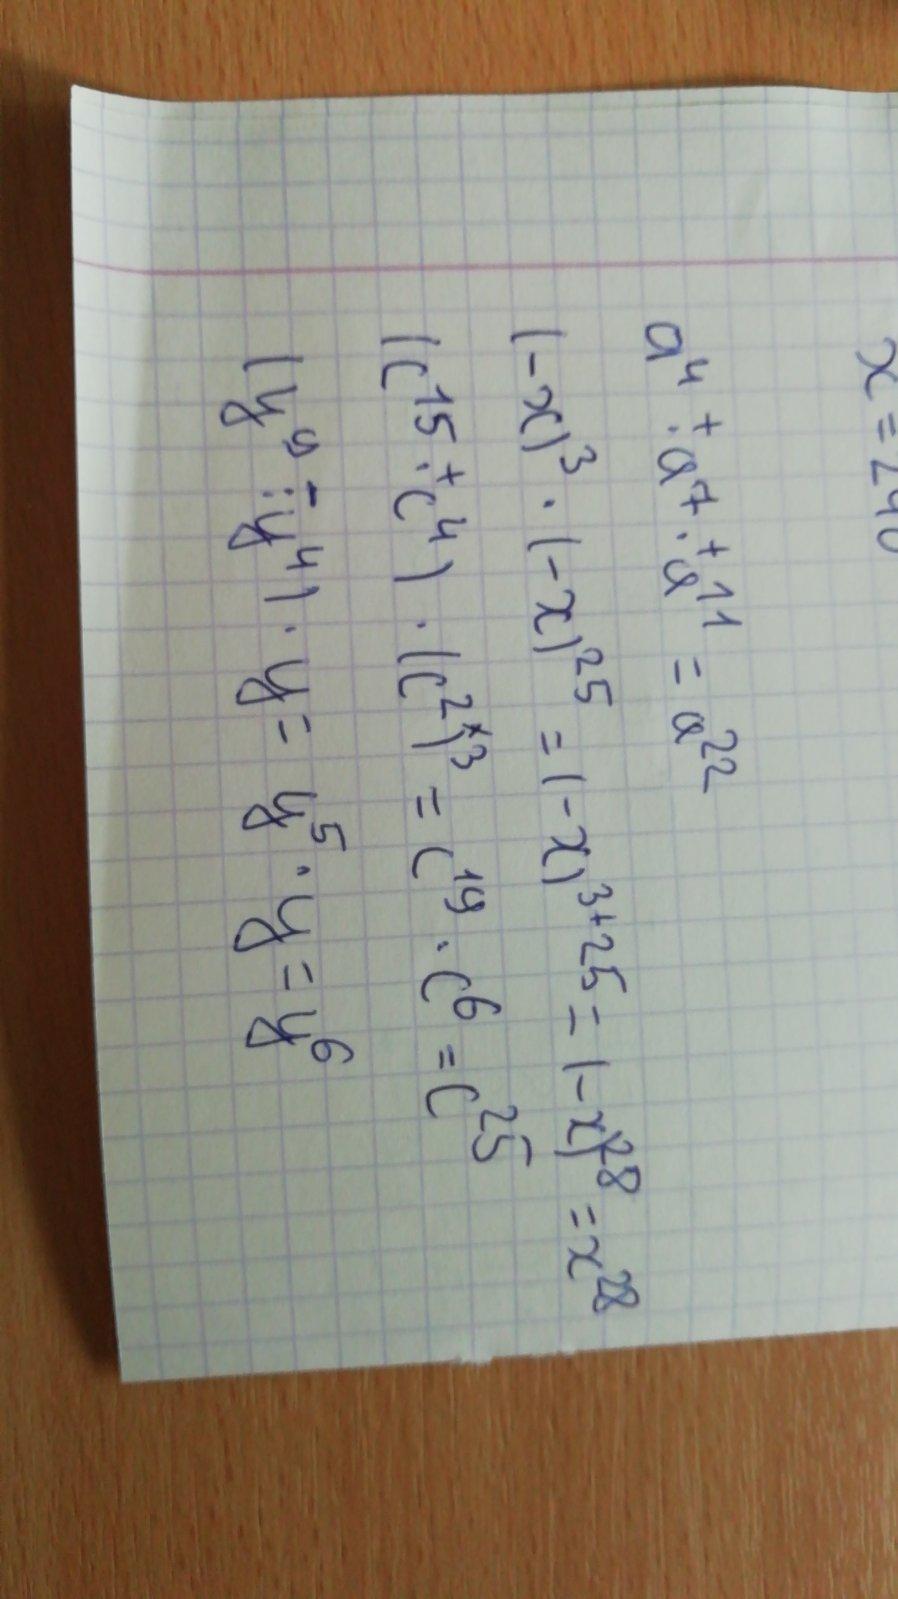 x = 240
a⁴ ·⁺ a⁷ ·⁺ a¹¹ = a²²
(-x)³ · (-x)²⁵ = (-x)³⁺²⁵ = (-x)²⁸ = x²⁸
(c¹⁵ ·⁺ c⁴) · (c²)ˣ³ = c¹⁹ · c⁶ = c²⁵
(y⁹ :⁻ y⁴) · y = y⁵ · y = y⁶